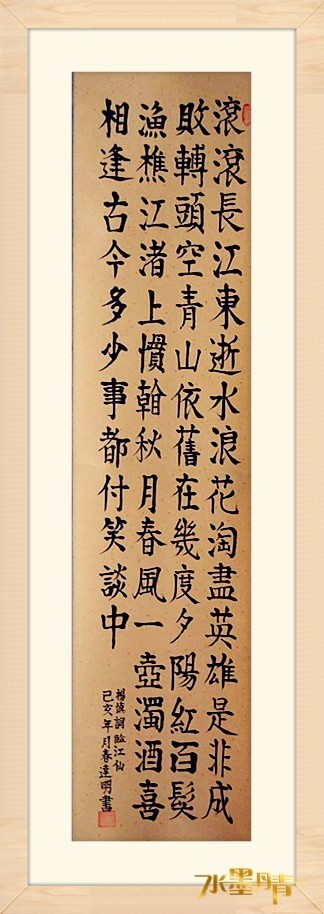 滾滾長江東逝水浪花淘盡英雄是非成
敗轉頭空青山依舊在幾度夕陽紅百髮
漁樵江渚上慣翰秋月春風一壺濁酒喜
相逢古今多少事都付笑談中
楊慎詞臨江仙
己亥年月春達明書
水墨丹青